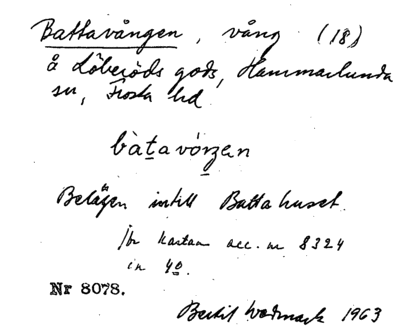 Battavången, vång (18)
å Löberöds gods, Hammarlunda
sn, Frosta hd.
bàtavóŋen
Belägen intill Battahuset.
Jfr kartan acc. nr 8324
in 4o.
Nr 8078.
Bertil Wadmark 1963